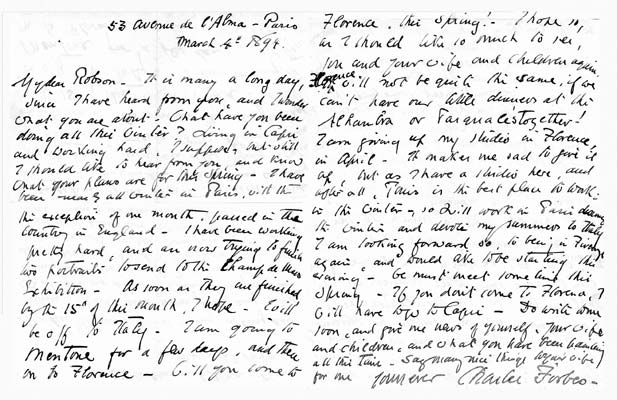 53 avenue de l'Alma - Paris
March 4th 1894.
My dear Robson - It is many a long day,
since I have heard from you, and I wonder
what you are about - What have you been
doing all this winter? Living in Capri
and working hard, I suppose, but still
I should like to hear from you, and know
what your plans are for this spring - I have
been nearly all winter in Paris, with the
the exception of one month, passed in the
country in England - I have been working
pretty hard, and am now trying to finish
two portraits to send to the Champ de Mars
Exhibition - As soon as they are finished
by the 15th of this month, I hope - I will
be off to Italy - I am going to
Mentone for a few days, and then
on to Florence - Will you come to
Florence, this spring! - I hope so,
as I should like so much to see,
you and your wife and children again,
Florence will not be quite the same, if we
can't have our little dinners at the
Alhambra or Pasquales together!
I am giving up my studio in Florence,
in April - It makes me sad to give it
up, but as I have a studio here, and
after all, Paris is the best place to work
in the winter, so I will work in Paris during
the winter and devote my summers to Italy
I am looking forward so, to being in Florence
again, and would like to be starting this
evening - We must meet some time this
spring - If you don't come to Florence, I
will have to go to Capri - Do write some
soon, and give me news of yourself, your wife
and children, and what you have been
all this time - Say many nice things to your wife
for me yours ever Charles Forbes -